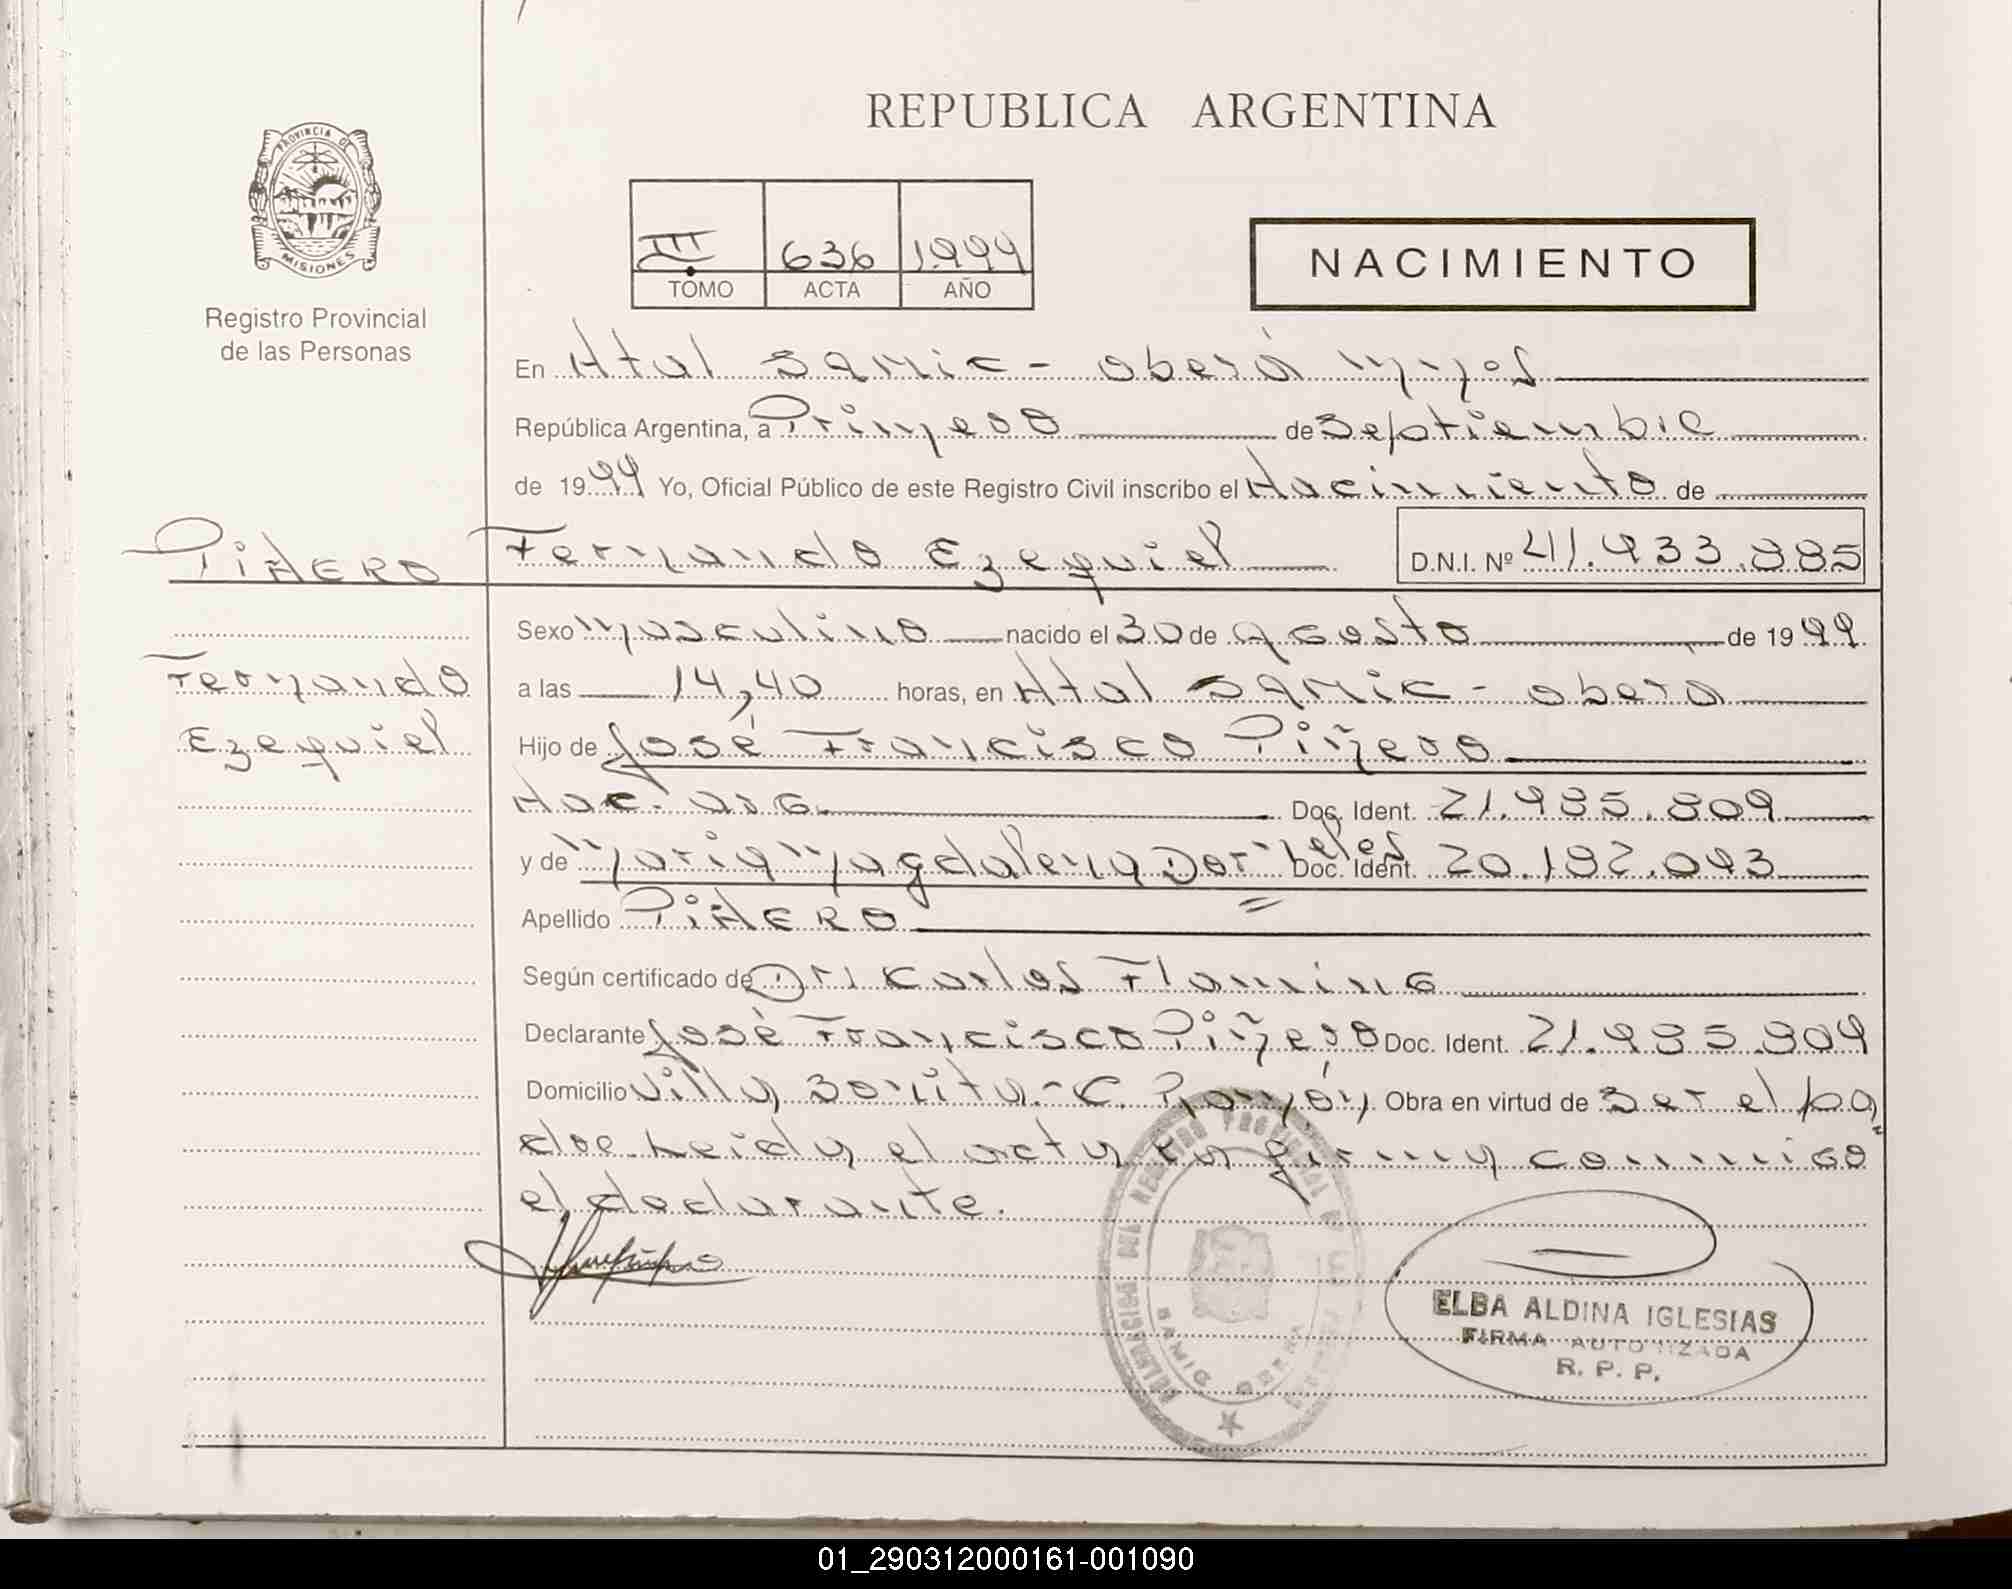 REPUBLICA ARGENTINA
PROVINCIA DE
MISIONES
Registro Provincial
de las Personas
III 636 1999
TOMO ACTA AÑO
NACIMIENTO
En Htal SAMic - oberá Mnes
República Argentina, a Primero de Septiembre
de 1999 Yo, Oficial Público de este Registro Civil inscribo el Nacimiento de
PiÑERO Fernando Ezequiel D.N.I. Nº 41.933.885
Sexo Masculino nacido el 30 de agosto de 1999
Fernando a las 14,40 horas, en Htal SAMic - oberá
Ezequiel Hijo de José Francisco Piñero
Nac. arg. Doc. Ident. 21.985.809
y de Maria Magdalena Dorneles Doc. Ident. 20.182.093
Apellido PiÑERO
Según certificado de Dr. Carlos
Declarante José Francisco Piñero Doc. Ident. 21.985.809
Domicilio Villa Bonita - C. Ramón Obra en virtud de Ser el pa
dre. Leida el acta la firma conmigo
el declarante.
DELEGACION DEL REGISTRO PROVINCIAL DE
SAMIC OBERA
ELBA ALDINA IGLESIAS
FIRMA AUTORIZADA
R. P. P.
01_290312000161-001090